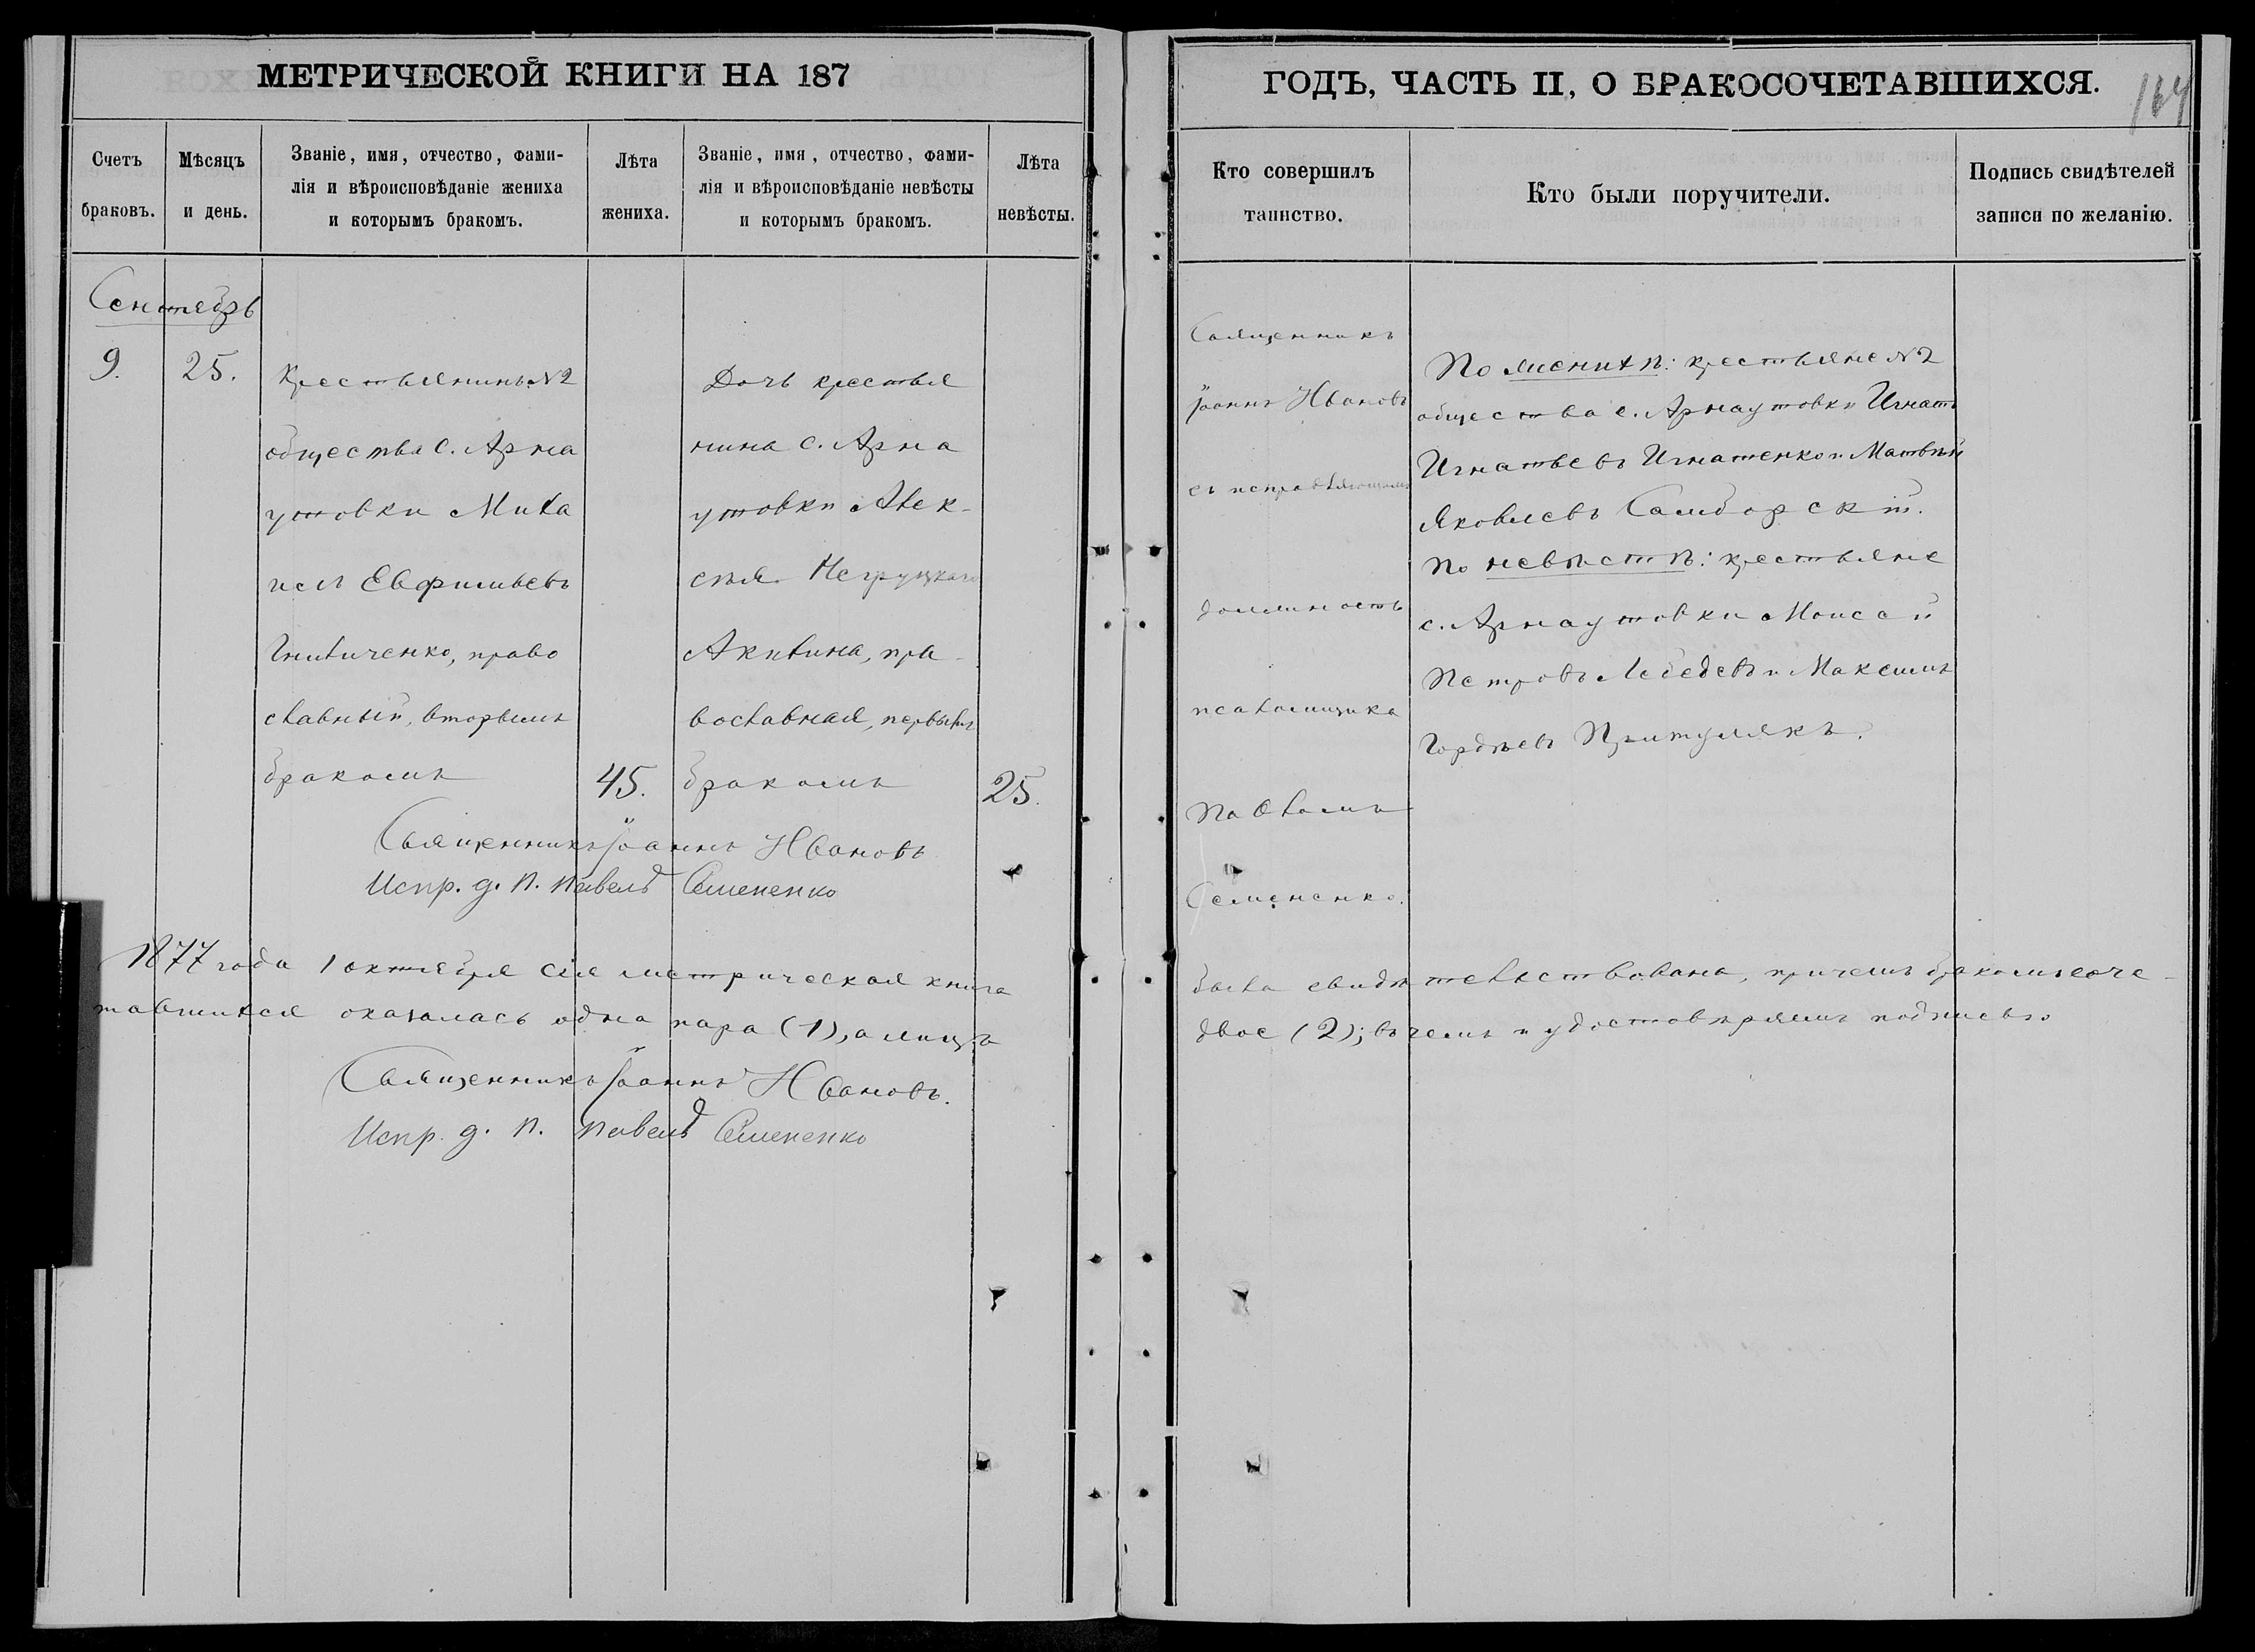 МЕТРИЧЕСКОЙ КНИГИ НА 187
Счетъ браковъ.
Мѣсяцъ и день.
Званіе, имя, отчество, фами-
лія и вѣроисповѣданіе жениха
и которымъ бракомъ.
Лѣта жениха.
Званіе, имя, отчество, фами-
лія и вѣроисповѣданіе невѣсты
и которымъ бракомъ.
Лѣта невѣсты.
Сентябрь
9.
25.
Крестьянинъ №2
общества с. Арна
утовки Миха
илъ Евфимьевъ
право
славный, вторымъ
бракомъ
45.
Дочь крестья
нина с. Арна
утовки Алек-
сѣя Негруцкаго
Акилина, пра-
вославная, первымъ
бракомъ
25.
Священникъ Іоаннъ Ивановъ
Испр. д. п. Павелъ Семененко
1877 года 1 октября сія метрическая книга
тавшихся оказалась одна пара (1), а лицъ
Священникъ Іоаннъ Ивановъ.
Испр. д. п. Павелъ Семененко
ГОДЪ, ЧАСТЬ II, О БРАКОСОЧЕТАВШИХСЯ.
164
Кто совершилъ
таинство.
Кто были поручители.
Подпись свидѣтелей
записи по желанію.
Священникъ
Іоаннъ Ивановъ
съ исправляющимъ
должность
псаломщика
Павломъ
Семененко.
По женихѣ: крестьяне №2
общества с. Арнаутовки Игнатъ
Игнатьевъ Игнатенко и Матвѣй
Яковлевъ Самборскій.
По невѣстѣ: крестьяне
с. Арнаутовки Моисей
Петровъ Лебедевъ и Максимъ
Гордѣевъ Притулякъ.
была свидѣтельствована, причемъ бракомъ соче-
двое (2); въ чемъ и удостовѣряемъ подписью